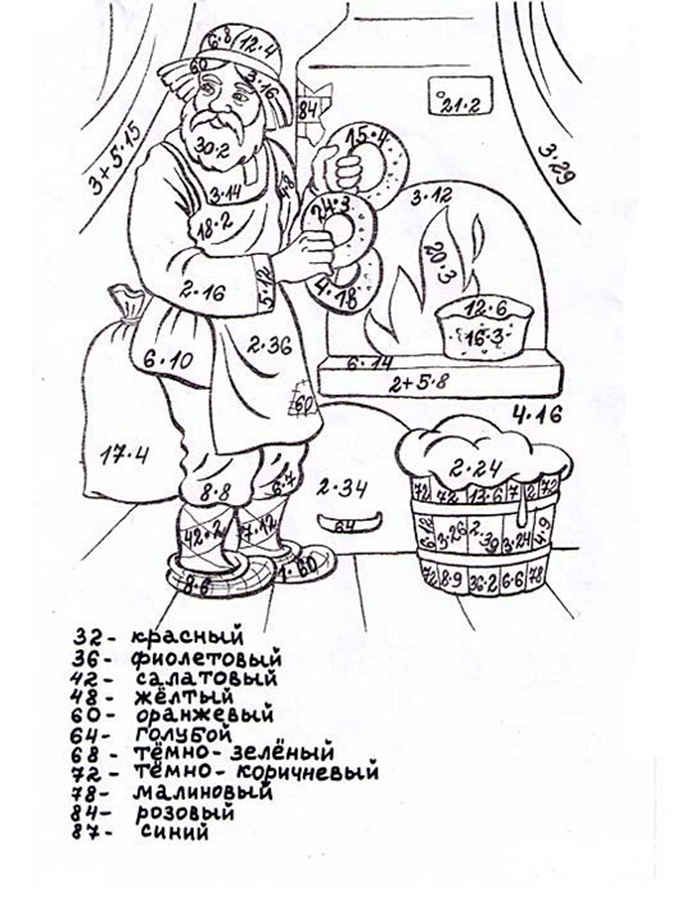 6·8 12·4
60
3·16
84
21·2
15·4
3+5·15
30·2
3·29
3·14
4·8
3·12
24·3
18·2
20·3
5·12
2·16
4·18
12·6
16·3
2·36
6·10
6·14
2+5·8
60
4·16
17·4
2·24
8·8
6·7
2·34
64
72 72 13·6 7 2 72
6·12 3·26 2·39 3·24 4·9
42·2 7·12
72 8·9 36·2 6·6 78
8·6
1·60
32- красный
36- фиолетовый
42- салатовый
48- жёлтый
60- оранжевый
64- голубой
68- тёмно-зелёный
72- тёмно-коричневый
78- малиновый
84- розовый
87- синий